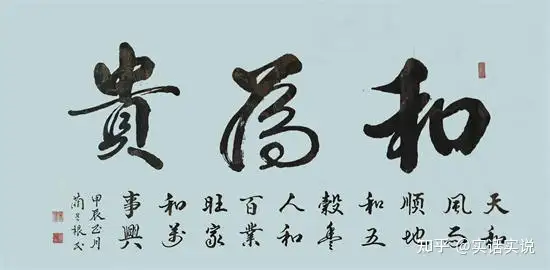 和為貴
天和
風雨
順地
和五
穀豐
人和
百業
旺家
和萬
事興
甲辰正月
知乎 @实话实说